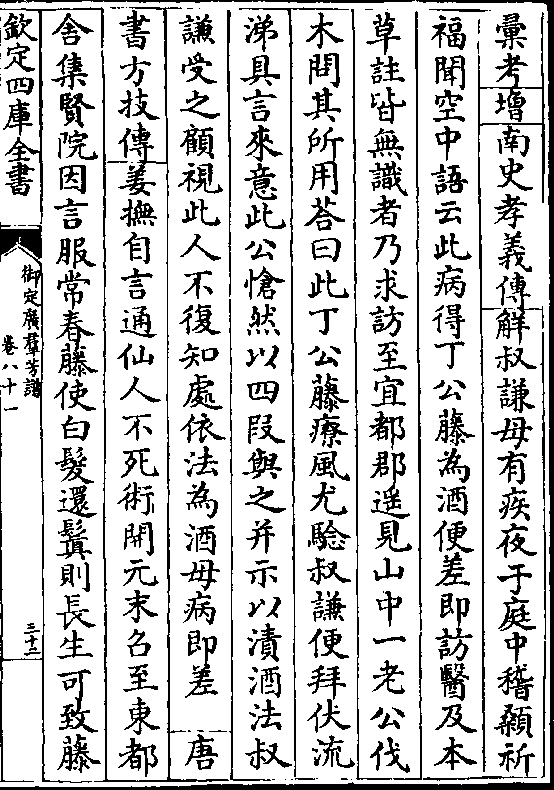 彚考增南史孝義傳解叔謙母有疾夜于庭中稽顙祈
福聞空中語云此病得丁公藤為酒便差即訪醫及本
草註皆無識者乃求訪至宜都郡遥見山中一老公伐
木問其所用荅曰此丁公藤療風尤驗叔謙便拜伏流
涕具言來意此公愴然以四段與之并示以漬酒法叔
謙受之顧視此人不復知處依法為酒母病即差 唐
書方技傳姜撫自言通仙人不死術開元末召至東都
舍集賢院因言服常春藤使白髮還鬒則長生可致藤
欽定四庫全書
御定廣羣芳譜
卷八十一
三十二